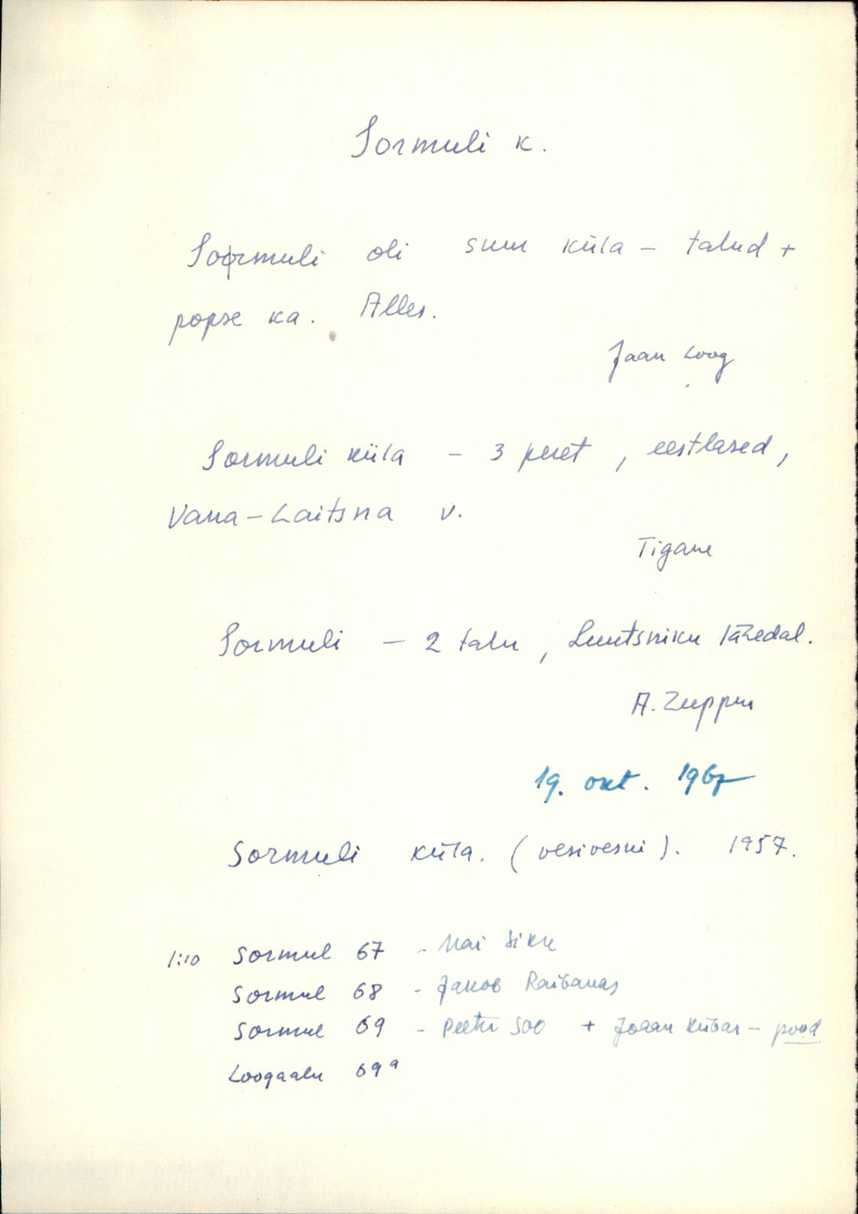 Sormuli k.
Sormuli oli suur küla – talud +
popse ka. Alles.
Jaan Loog
Sormuli küla – 3 peret, eestlased,
Vana-Laitsna v.
Tigane
Sormuli – 2 talu, Luutsniku lähedal.
A. Zuppur
19. okt. 1967
Sormuli küla. (vesiveski). 1957.
1:10 Sormul 67 – Mai Siku
Sormul 68 – Jakob Raibakas
Sormul 69 – Peetri Soo + Johan Kübar – pood
Loogaalu 69ª